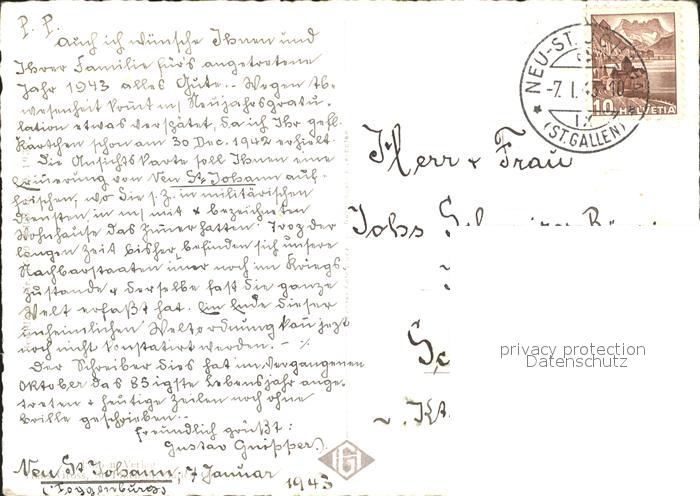 P. P.
Auch ich wünsche Ihnen und
Ihrer Familie fürs angetretene
Jahr 1943 alles Gute.. Wegen Ab-
wesenheit kommt m/ Neujahrsgratu-
lation etwas verspätet, da ich Ihr gefl.
Kärtchen schon am 30 Dec. 1942 erhielt.
Die Ansichtskarte soll Ihnen eine
Erinnerung von Neu St. Johann auf-
frischen, wo Sie s. Z. in militärischen
Diensten, in m/ mit x bezeichneten
Wohnhause das Zimmer hatten. Troz der
langen Zeit bisher, befinden sich unsere
Nachbarstaaten immer noch im Kriegs-
zustande & derselbe fast die ganze
Welt erfaßt hat. Ein Ende dieser
unheimlichen Weltordnung kann jezt
noch nicht konstatirt werden. -
Der Schreiber dies hat im vergangenen
Oktober das 85igste Lebensjahr ange-
treten & heutige Zeilen noch ohne
Brille geschrieben.-
Freundlich grüßt:
Gustav
Neu St Johann, 7 Januar 1943
(Toggenburg)
NEU-ST.
-7. I. 43 - 10
(ST.GALLEN)
10 HELVETIA
Herr & Frau
Johs
privacy protection
Datenschutz